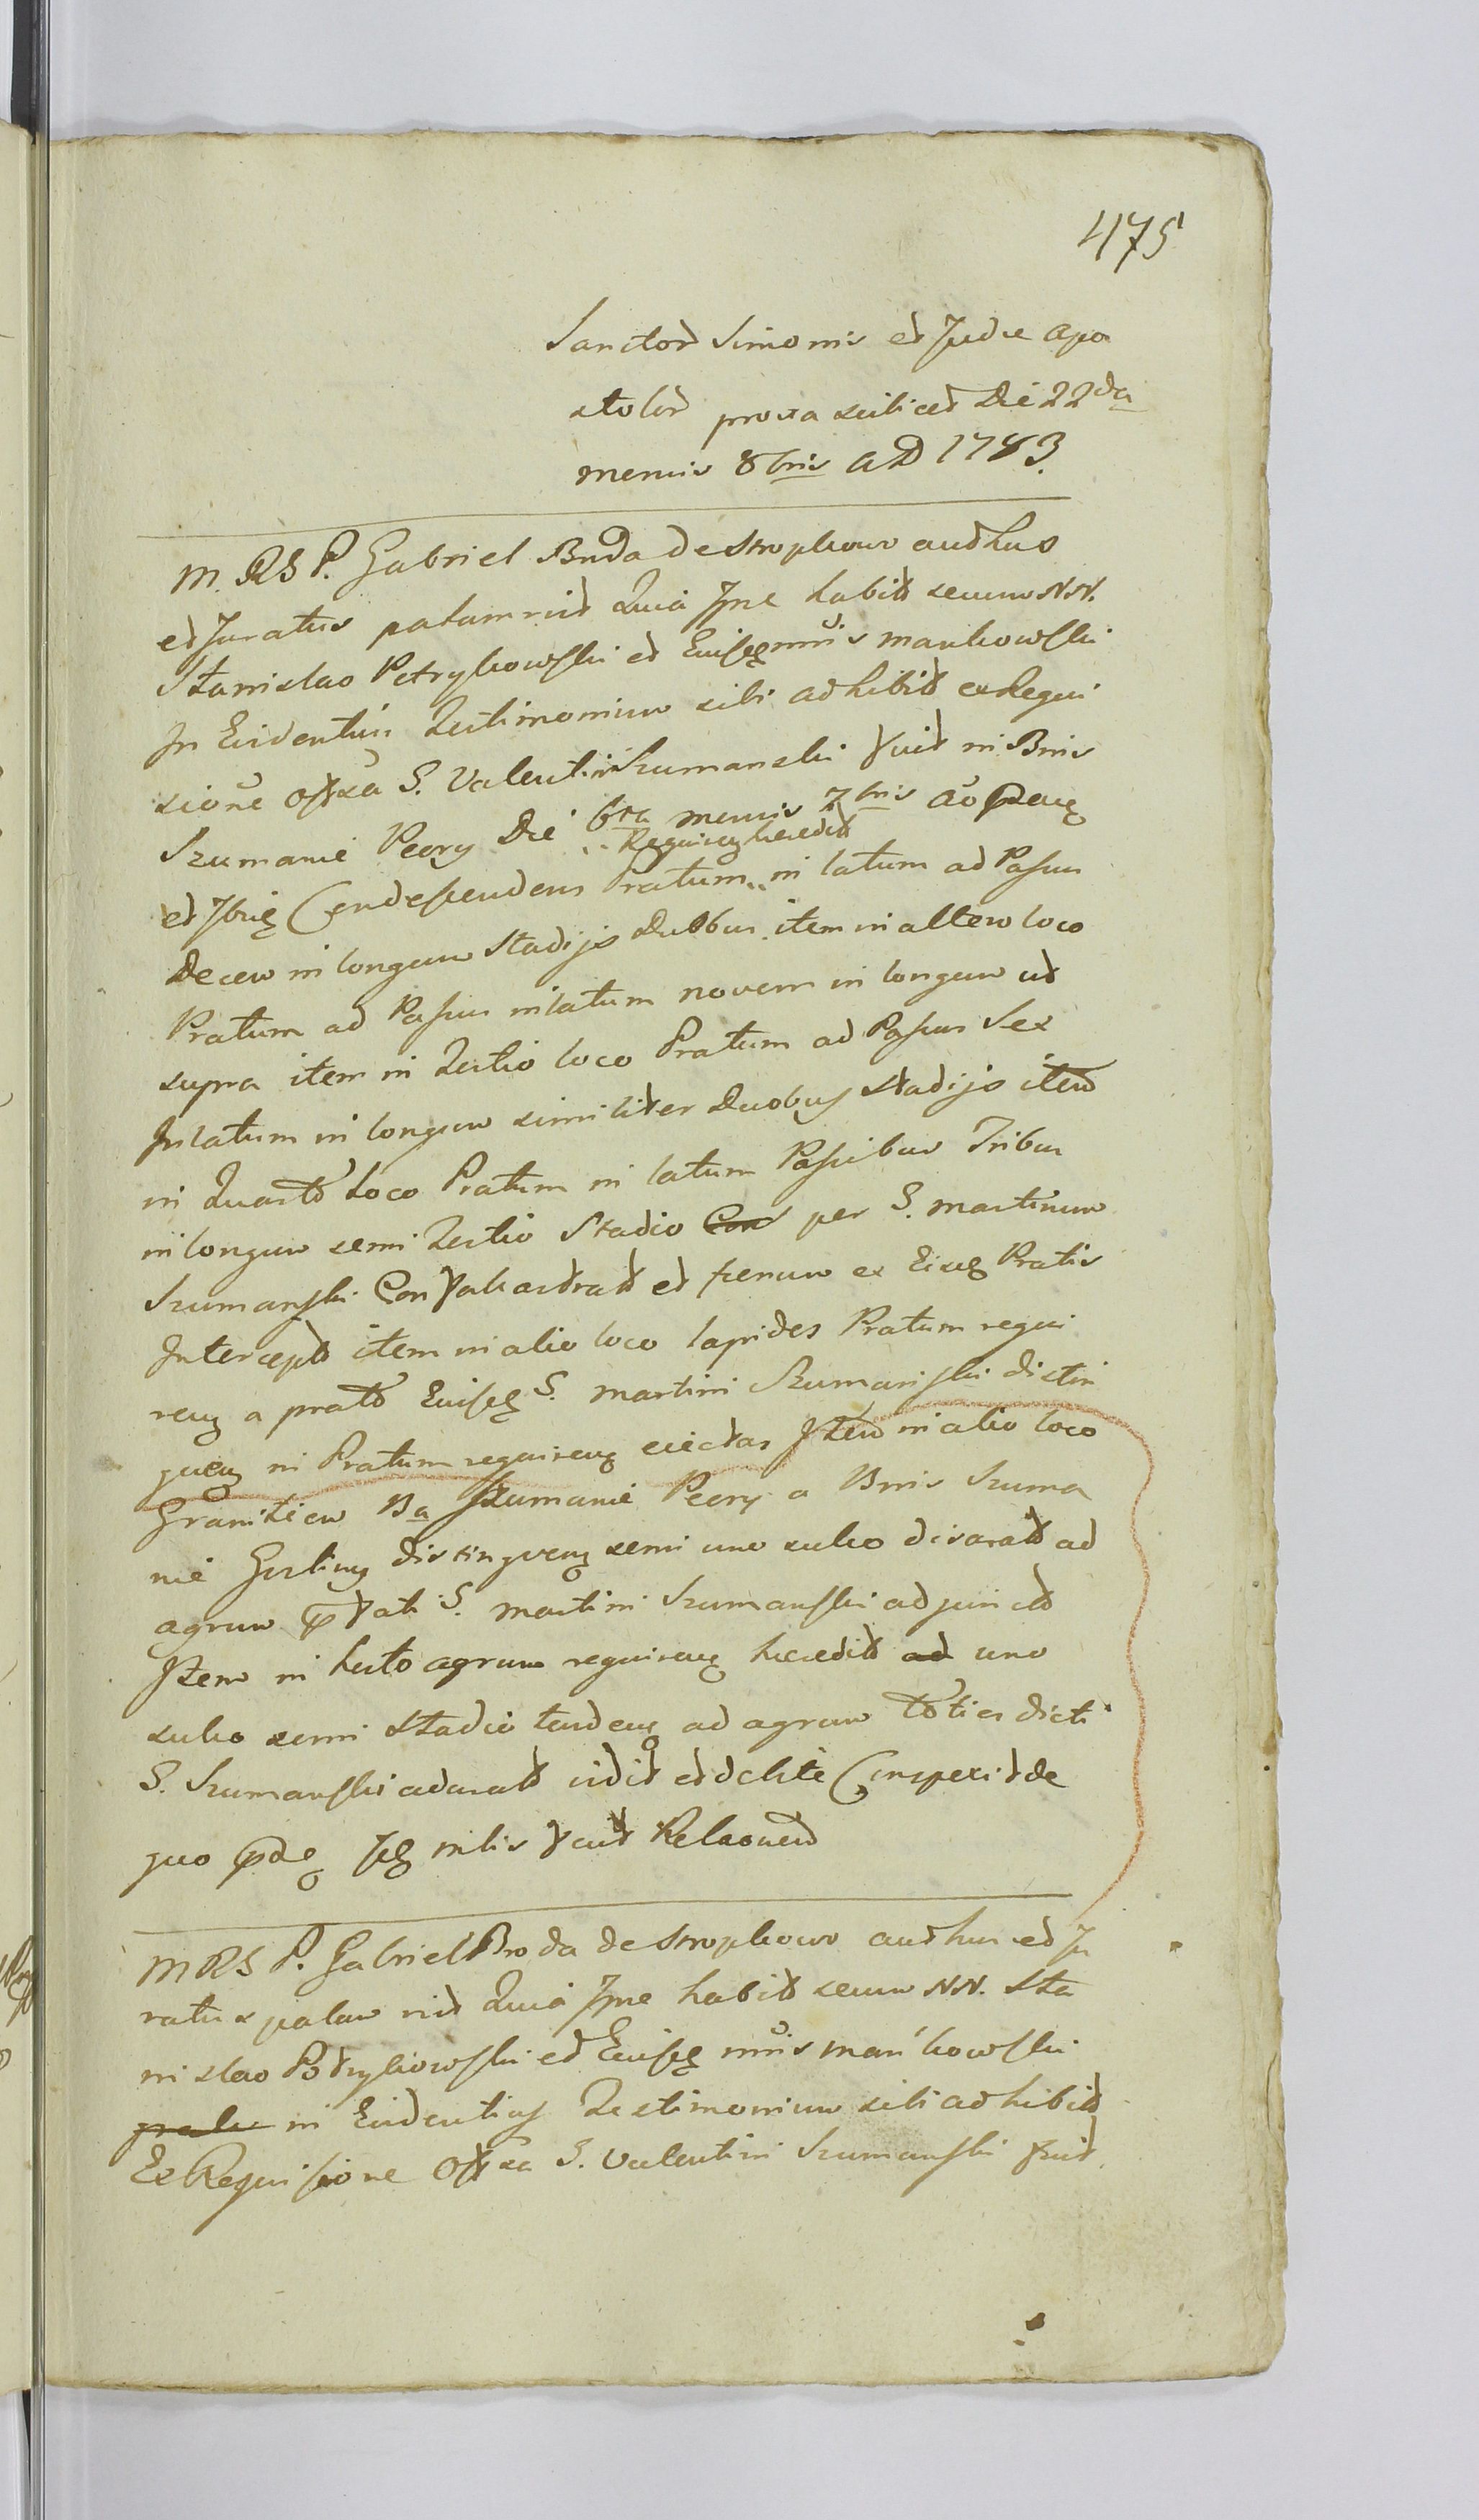 475
Sanctor Simonis et Judae Apo
stolor proxa scilicet Die 22da
mensis 8bris AD 1783.
M. RS P. Gabriel Broda de Stropkowo authus
et Juratus palam rnit Quia Ipse habitt secum NN.
Stanislao Petrykowski et Eiusdem mris Mankowski
In Evidentius Testimonium sibi adhibitt ex Requi
sione Gsa S. Valentini Szumanski fuit in Bnis
Szumanie Pecry Die 6ta mensis 7bris Ao
Requirens heredit
et Ibiq Condescendens Pratum in latum ad Passus
Decem in longum Stadijs Duobus item in altero loco
Pratum ad Passus in latum novem in longum ut
supra item in Tertio loco Pratum ad Passus Sex
In latum in longum similiter Duobus Stadijs item
in Quarto Loco Pratum in latum Passibus Tribus
in longum semi Tertio Stadio per S. Martinum
Szumanski Con falcastratt et faenum ex Eisdem Pratis
Intercept item in alio loco lapides Pratum requi
rens a prato Eiusdem S. Martini Szumanski distin
guens in Pratum requirens eiectas Item in alio loco
Granitiem Ba Szumanie Pecry a Bnis Szuma
nie Gostiny distingvens semi uno sulco disaratt ad
agrum S. Martini Szumanski adjunctt
Item in agrum requirens haeredit ad uno
sulco semi Stadio tendens ad agrum toties dicti
S. Szumanski adaratt vidit et debite Conspexit de
quo Relaonem
M RS P. Gabriel Broda de Stropkowo authus et Ju
ratus palam rnit Quia Ipse habitt secum NN. Sta
nislao Petrykowski et Eiusdem mris Mańkowski
in Evidentius Testimonium sibi adhibitt
Ex Requisione Gsa S. Valentini Szumanski fuit